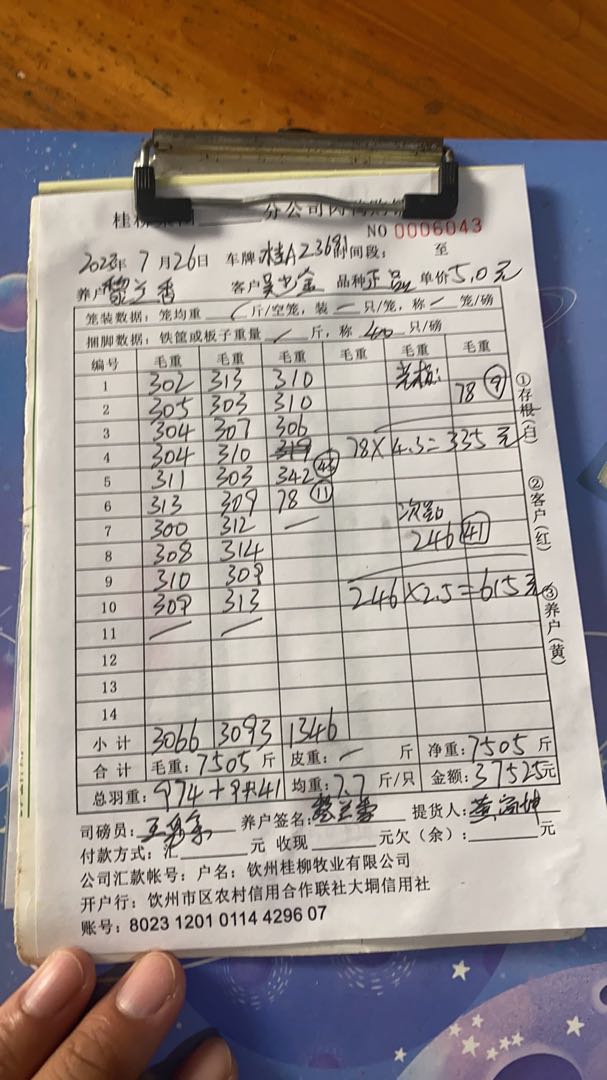 分公司肉鸭购销
NO 0006043
2023年 7月26日 车牌:桂A236 时间段: 至
养户 黎兰香 客户 品种 正品 单价 5.0元
笼装数据:笼均重 / 斤/空笼,装 一 只/笼,称 一 笼/磅
捆脚数据:铁筐或板子重量 / 斤,称 400 只/磅
编号 毛重 毛重 毛重 毛重 毛重 毛重
1 302 313 310 78 ⑨
2 305 303 310
3 304 307 306
4 304 310 319 78×4.3=335元
5 311 303 342 ㊸
6 313 309 78 ⑪
7 300 312 一 次品
8 308 314 246 ㊶
9 310 309
10 309 313 246×2.5=615元
11 一 一
12
13
14
小计 3066 3093 1346
合计 毛重:7505斤 皮重:一 斤 净重:7505斤
总羽重:974+9+41 均重:7.7斤/只 金额:37525元
司磅员: 养户签名:黎兰香 提货人:
付款方式:汇 元 收现 元欠(余): 元
公司汇款帐号:户名:钦州桂柳牧业有限公司
开户行:钦州市区农村信用合作联社大垌信用社
账号:8023 1201 0114 4296 07
①存根(白)
②客户(红)
③养户(黄)